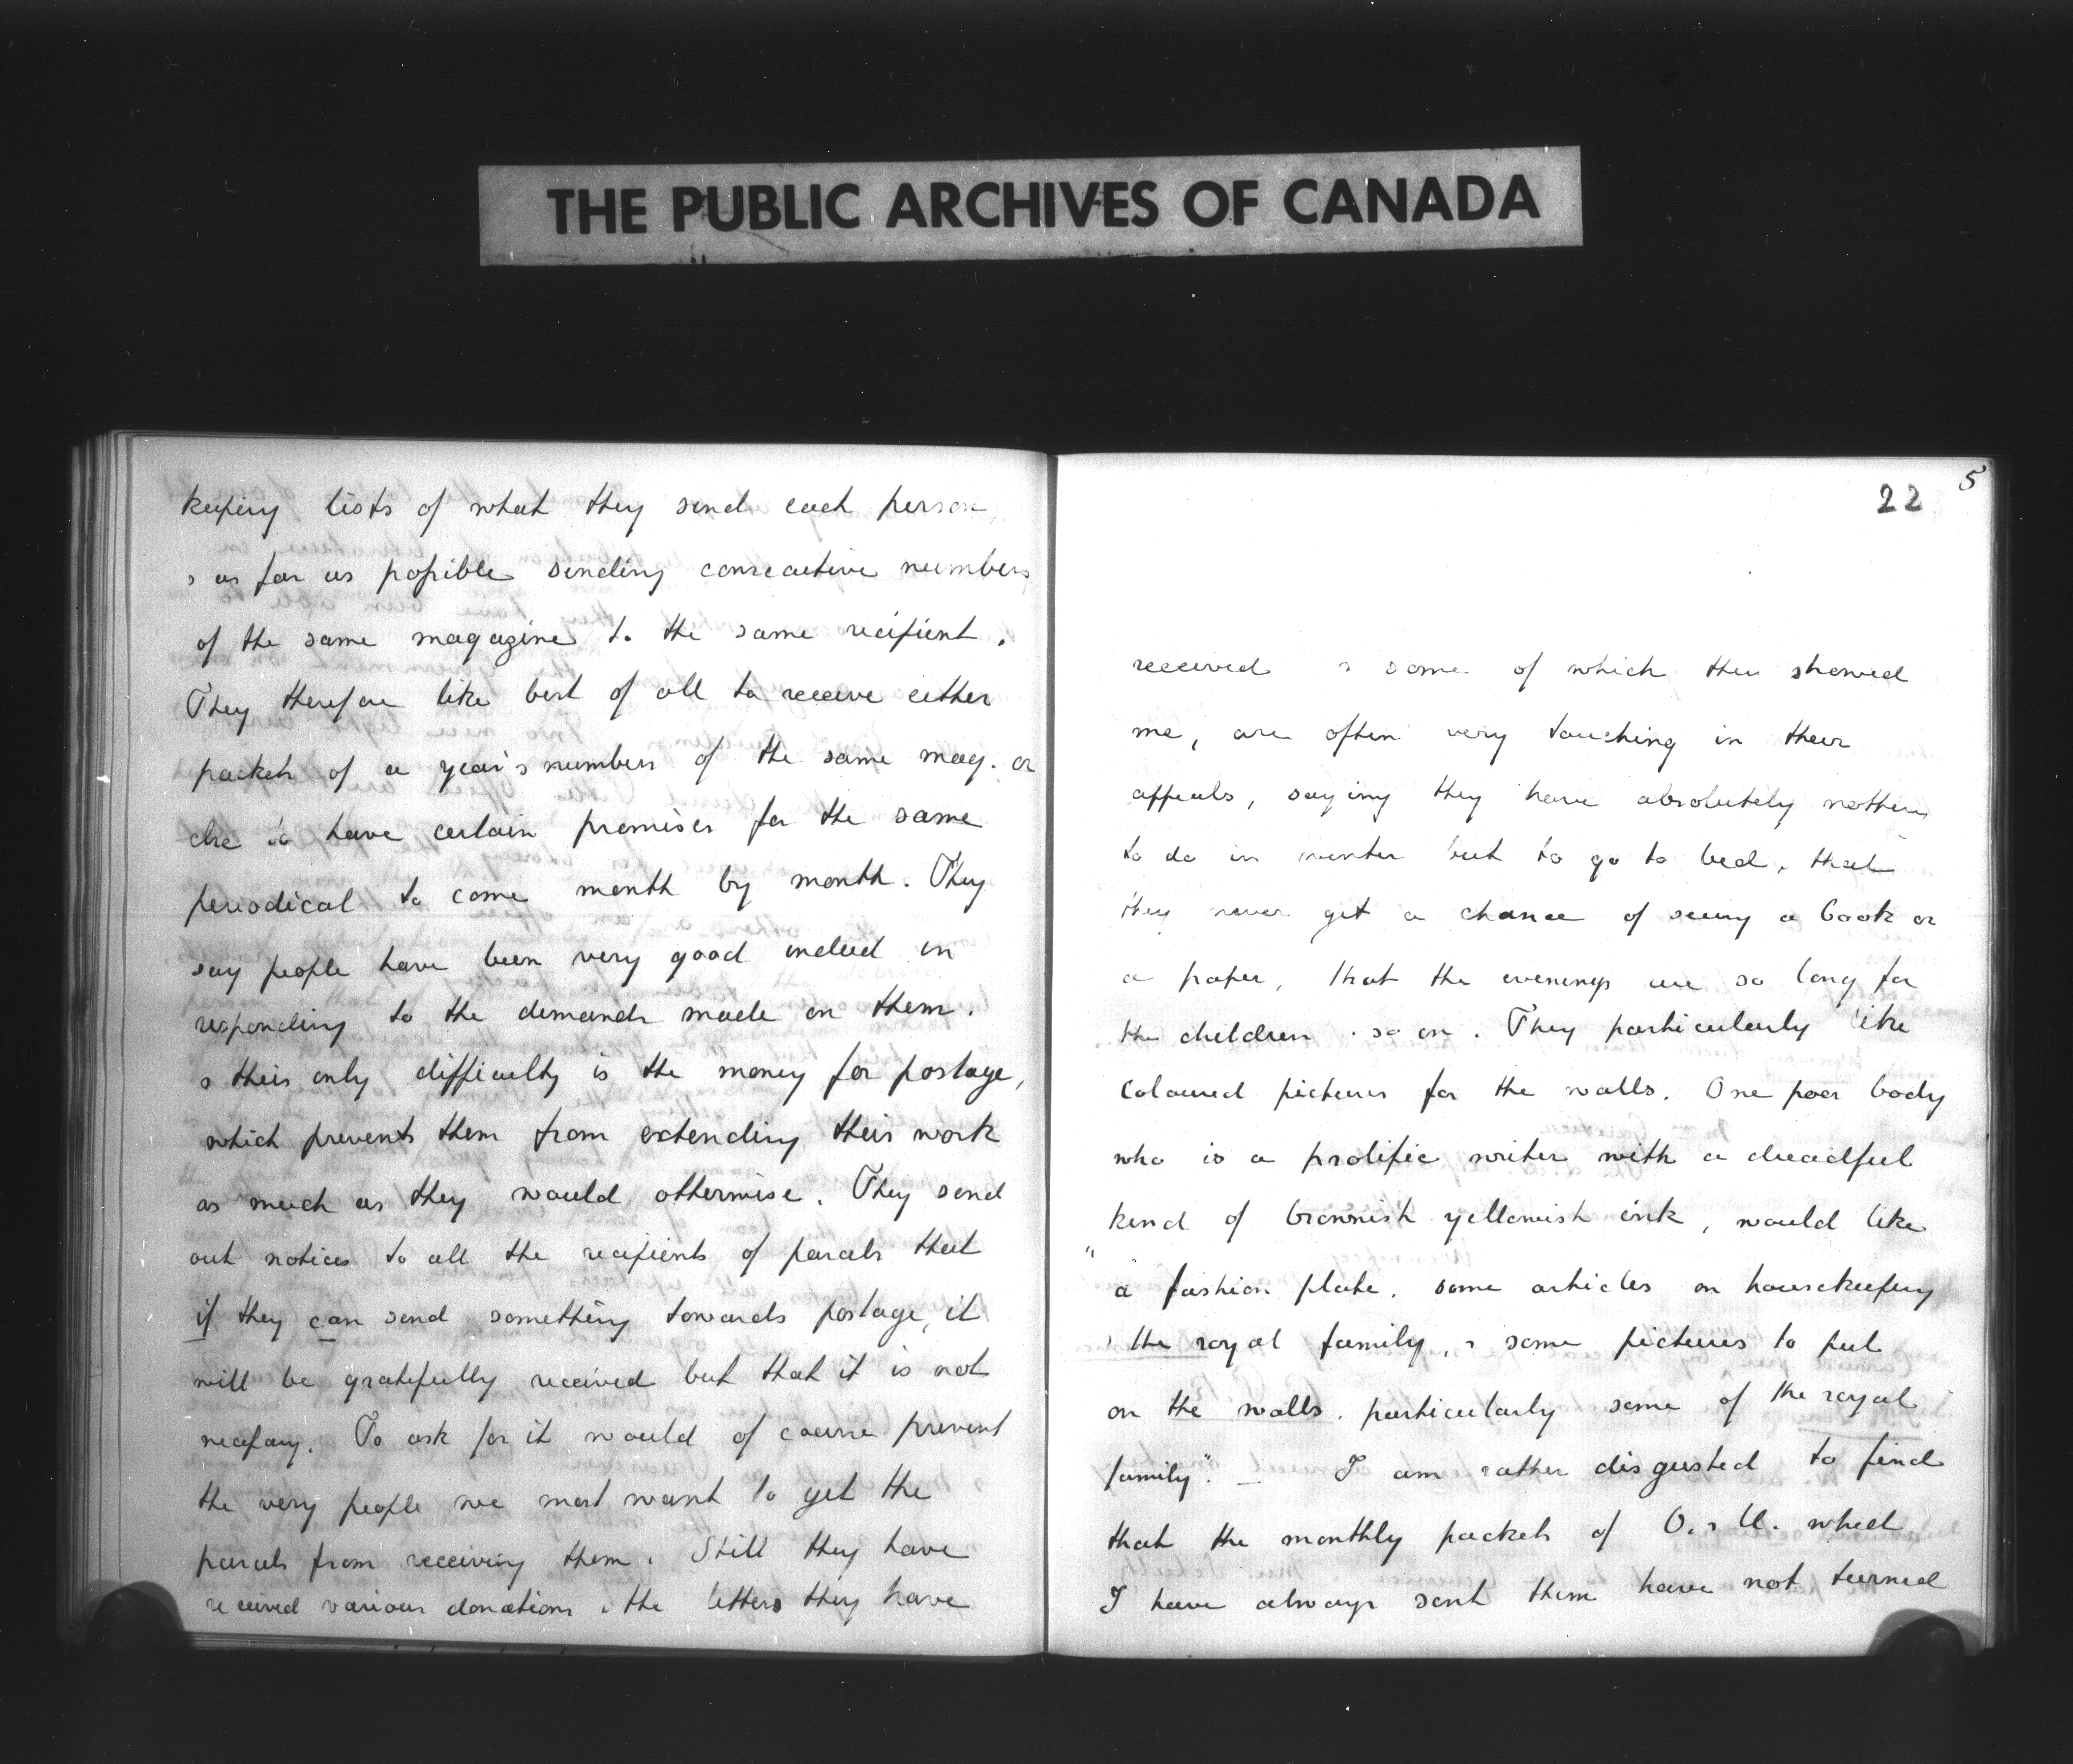 THE PUBLIC ARCHIVES OF CANADA
keeping lists of what they send each person,
& as far as possible sending consecutive numbers
of the same magazine to the same recipient.
They therefore like best of all to receive either
packets of a year's numbers of the same mag. or
else to have certain promises for the same
periodical to come month by month. They
say people have been very good indeed in
responding to the demands made on them.
& their only difficulty is the money for postage,
which prevents them from extending their work
as much as they would otherwise. They send
out notices to all the recipients of parcels that
if they can send something towards postage, it
will be gratefully received but that it is not
necessary. To ask for it would of course prevent
the very people we most want to get the
parcels from receiving them. Still they have
received various donations & the letters they have
5
22
received & some of which they showed
me, are often very touching in their
appeals, saying they have absolutely nothing
to do in winter but to go to bed, that
they never get a chance of seeing a book or
a paper, that the evenings are so long for
the children & so on. They particularly like
coloured pictures for the walls. One poor body
who is a prolific writer with a dreadful
kind of brownish yellowish ink, would like
"a fashion plate, some articles on housekeeping
& the royal family, & some pictures to put
on the walls, particularly some of the royal
family". — I am rather disgusted to find
that the monthly packets of O. & U. which
I have always sent them have not turned